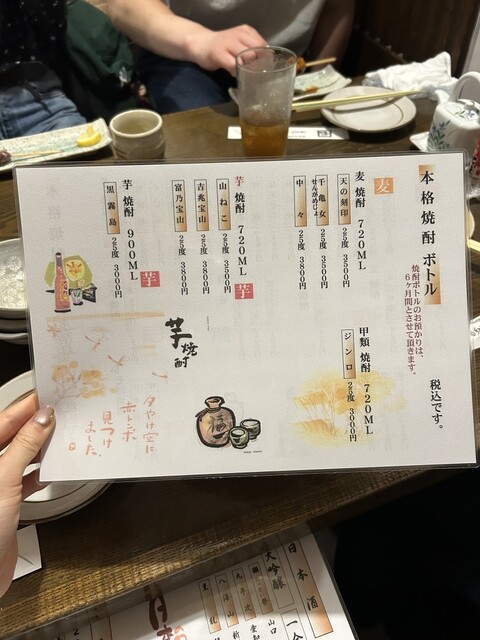 本格焼酎 ボトル
焼酎ボトルのお預かりは、
6ヶ月間とさせて頂きます。
税込です。
麦
麦 焼酎 720ML
天の刻印 25度 3500円
千亀女 25度 3500円
せんがめじょ
中々 25度 3800円
甲類 焼酎 720ML
ジンロ 25度 3000円
芋 焼酎 720ML 芋
山ねこ 25度 3500円
吉兆宝山 25度 3800円
富乃宝山 25度 3800円
芋 焼酎 900ML 芋
黒霧島 25度 3000円
芋焼酎
酒
夕やけ空に
赤トンボ
見つけ
ました。
日本酒 一合
大吟醸
山口
八海山 新